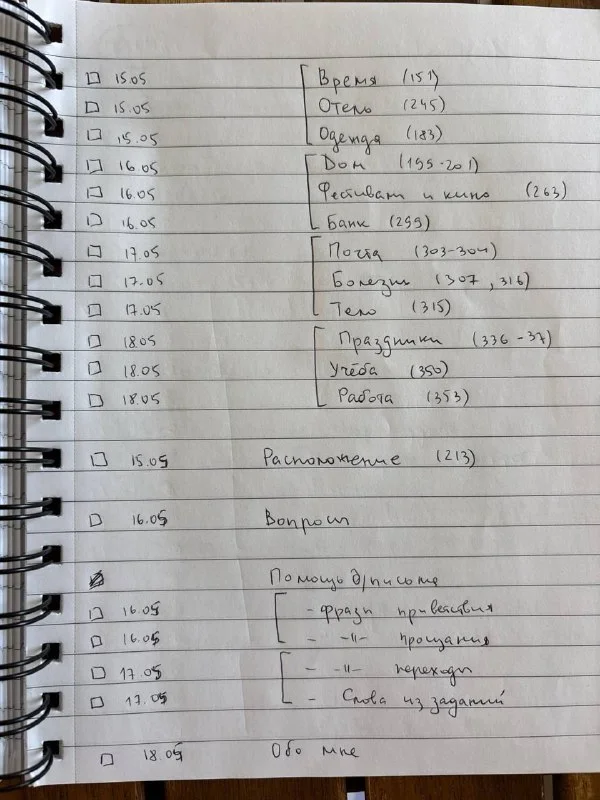 15.05 Время (151)
15.05 Отель (245)
15.05 Одежда (183)
16.05 Дом (195-201)
16.05 Фестивали и кино (263)
16.05 Банк (299)
17.05 Почта (303-304)
17.05 Болезни (307, 316)
17.05 Тело (315)
18.05 Праздники (336-37)
18.05 Учёба (350)
18.05 Работа (353)
15.05 Расположение (213)
16.05 Вопросы
Помощь д/письма
16.05 - Фразы приветствия
16.05 - -||- прощания
17.05 - -||- переходы
17.05 - Слова из заданий
18.05 Обо мне